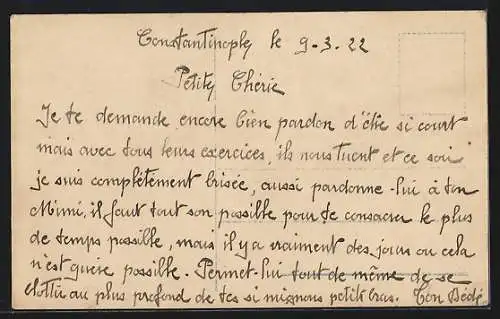 Constantinople le 9-3.22
Petite Chérie
Je te demande encore bien pardon d'être si court
mais avec tous leurs exercices, ils nous tuent et ce soir
je suis complètement brisée, aussi pardonne-lui à ton
Mimi, il faut tout son possible pour te consacrer le plus
de temps possible, mais il y a vraiment des jours ou cela
n'est guère possible. Permet-lui tout de même de se
blottir au plus profond de tes si mignons petits bras. Ton Bédé